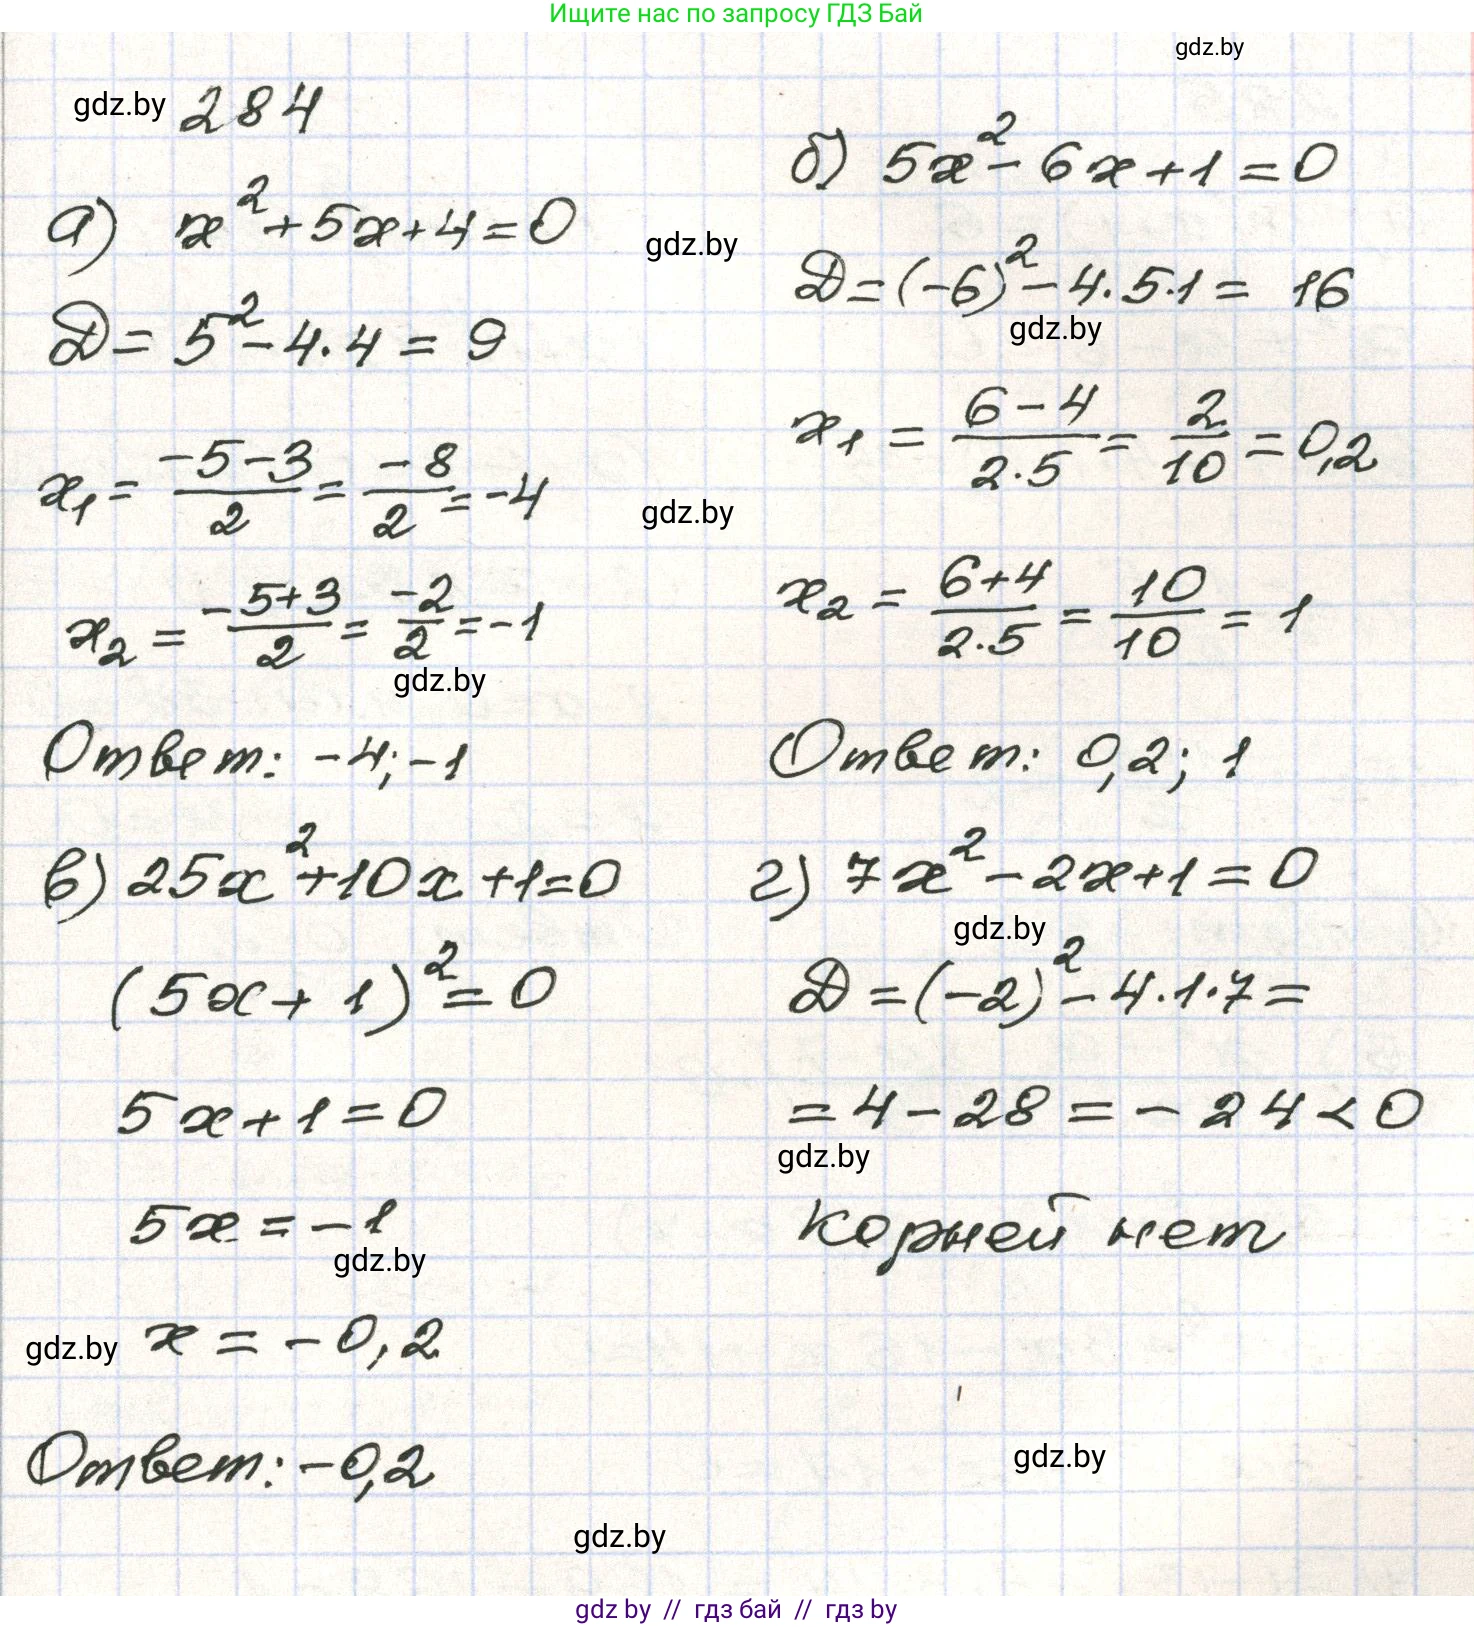 Ищите нас по запросу ГДЗ Бай
gdz.by
gdz.by 284
а) x² + 5x + 4 = 0
gdz.by
Д = 5² - 4·4 = 9
x₁ = (-5-3)/2 = -8/2 = -4
gdz.by
x₂ = (-5+3)/2 = -2/2 = -1
gdz.by
Ответ: -4; -1
б) 5x² - 6x + 1 = 0
Д = (-6)² - 4·5·1 = 16
gdz.by
x₁ = (6-4)/(2·5) = 2/10 = 0,2
x₂ = (6+4)/(2·5) = 10/10 = 1
Ответ: 0,2; 1
в) 25x² + 10x + 1 = 0
(5x + 1)² = 0
5x + 1 = 0
5x = -1
gdz.by
gdz.by x = -0,2
Ответ: -0,2
г) 7x² - 2x + 1 = 0
gdz.by
Д = (-2)² - 4·1·7 =
= 4 - 28 = -24 < 0
gdz.by
корней нет
gdz.by
gdz.by
gdz by // гдз бай // гдз by